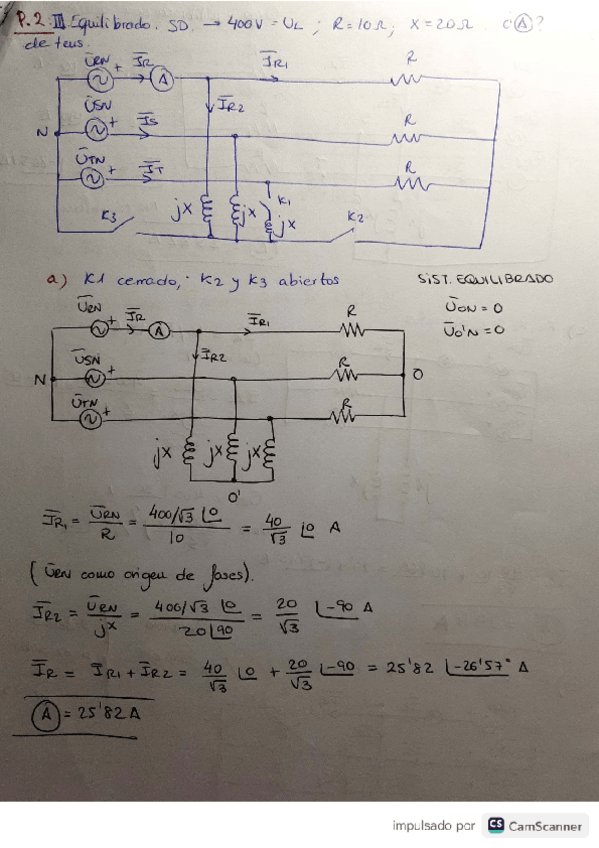 P.2 III Equilibrado. SD. → 400V = UL ; R = 10Ω ; X = 20Ω ¿Ⓐ?
de teus.
ŪRN + ĪR A ĪR1 R
ĪR2
ŪSN + ĪS R
N
ŪTN + ĪT R
K3 jX jX K1 jX K2
a) K1 cerrado, K2 y K3 abiertos
SIST. EQUILIBRADO
ŪON = 0
ŪO'N = 0
ŪRN + ĪR A ĪR1 R
ĪR2
ŪSN + R
N O
ŪTN + R
jX jX jX
O'
ĪR1 = ŪRN / R = 400/√3 ∠0 / 10 = 40/√3 ∠0 A
(ŪRN como origen de fases).
ĪR2 = ŪRN / jX = 400/√3 ∠0 / 20∠90 = 20/√3 ∠-90 A
ĪR = ĪR1 + ĪR2 = 40/√3 ∠0 + 20/√3 ∠-90 = 25'82 ∠-26'57° A
Ⓐ = 25'82 A
impulsado por CS CamScanner